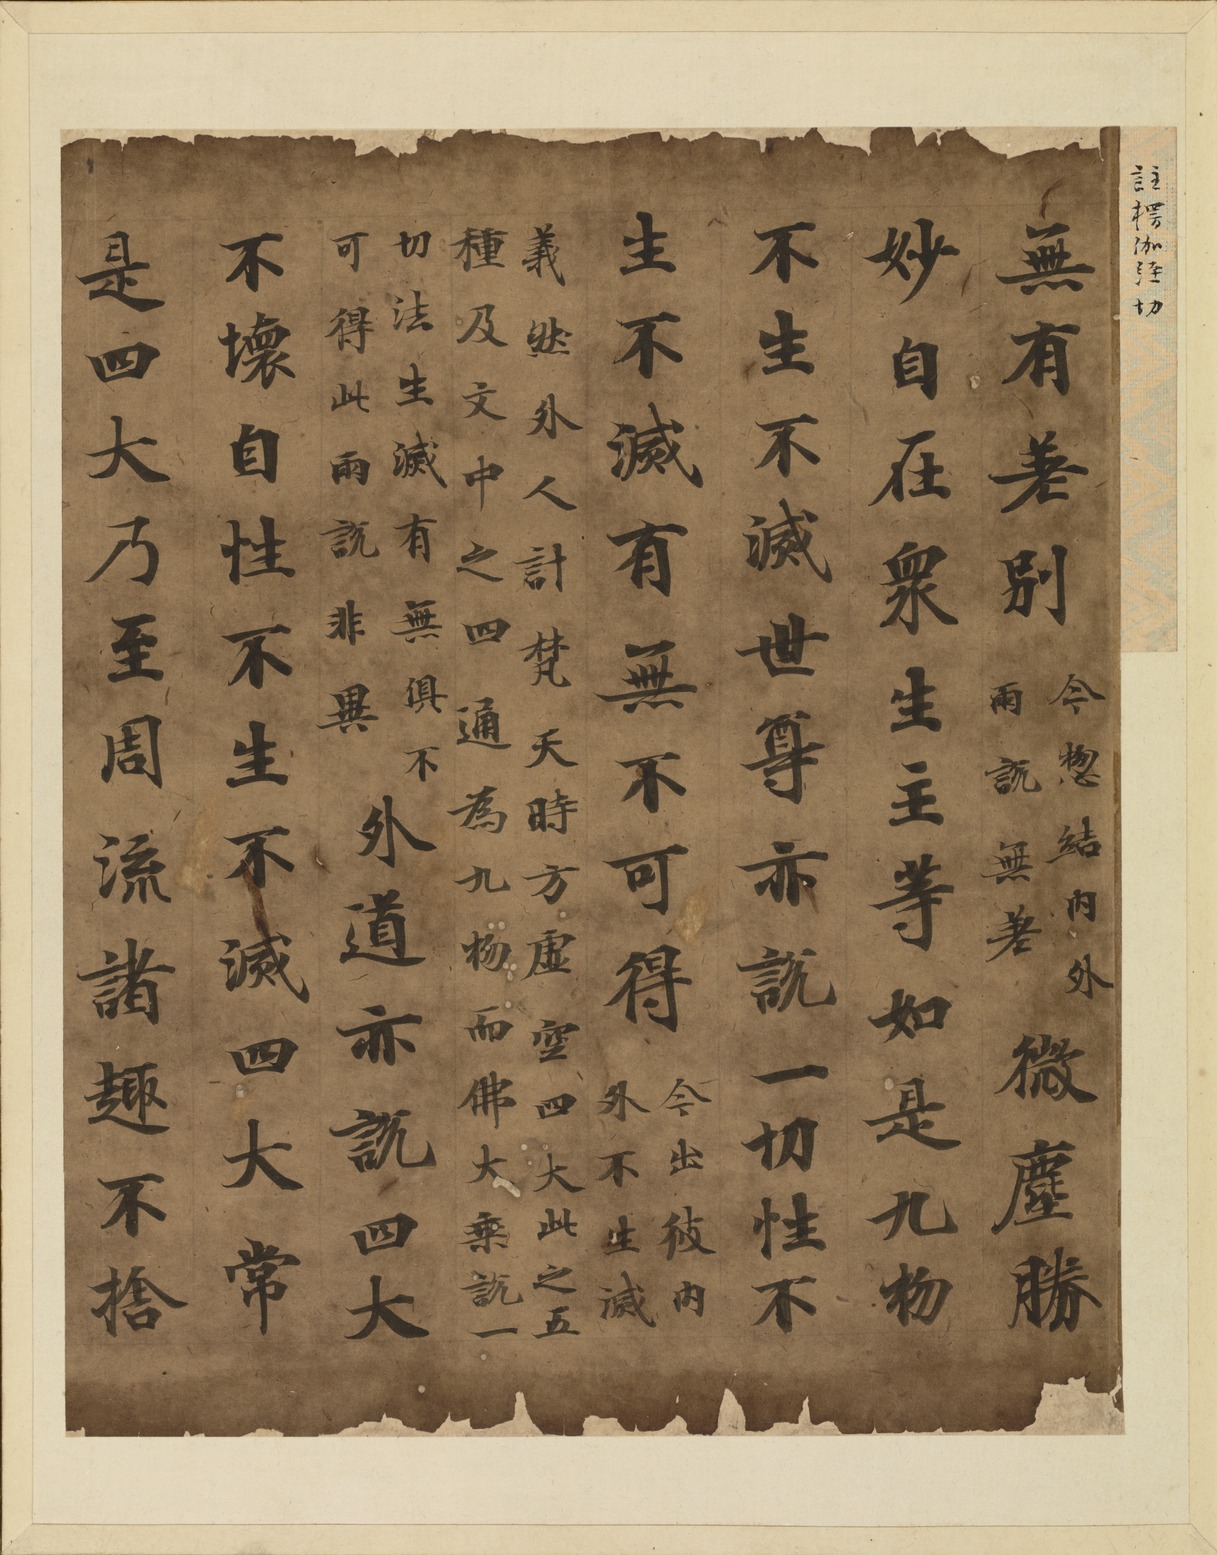 註楞伽経切
無有差別
今惣結内外
兩說無差
微塵勝
妙自在衆生主等如是九物
不生不滅世尊亦說一切性不
生不滅有無不可得
今出彼内
外不生滅
義然外人計梵天時方虛空四大此之五
種及文中之四通為九物而佛大乘說一
切法生滅有無俱不
可得此兩說非異
外道亦說四大
不壞自性不生不滅四大常
是四大乃至周流諸趣不捨